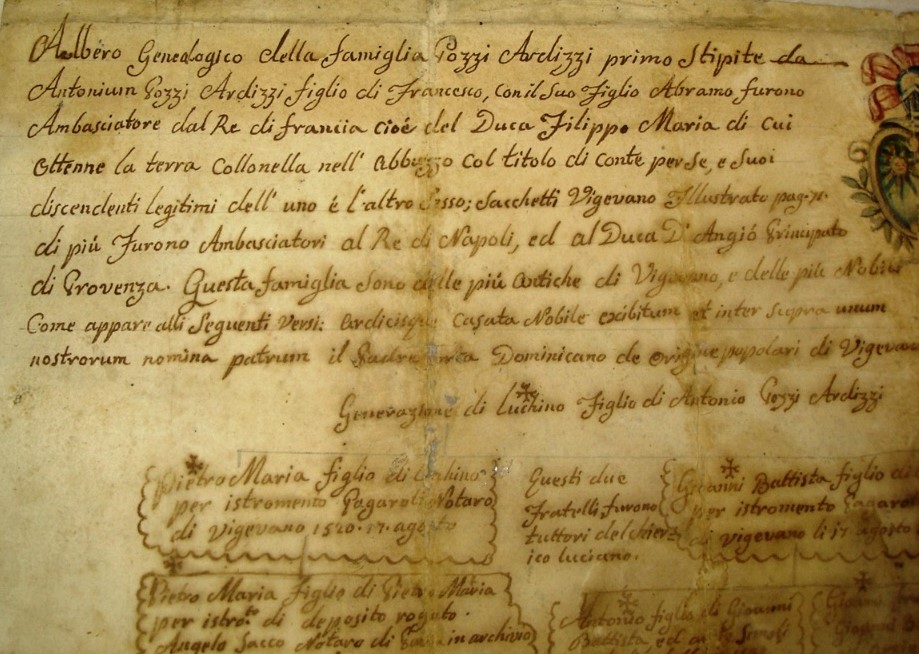 Albero Genealogico della famiglia Pozzi Ardizzi primo Stipite da
Antonium Pozzi Ardizzi figlio di Francesco, con il Suo Figlio Abramo furono
Ambasciatore dal Re di franciia cioé del Duca Filippo Maria di cui
ottenne la terra Collonella nell' Abbuzzo col titolo di conte per Se, e Suoi
discendenti legitimi dell' uno é l'altro Sesso; Sacchetti Vigevano Illustrato pag.
di piú furono Ambasciatori al Re di Napoli, ed al Duca D'Angió Principato
di Provenza. Questa famiglia Sono delle piú antiche di Vigevano, e delle piú
Come appare alli Seguenti Versi: Ardicisque Casata Nobile exibitum et inter Supra unum
nostrorum nomina patrum il Padre Dominicano de origine popolari di
Generazione di Luchino Figlio di Antonio Pozzi Ardizzi
Pietro Maria figlio di Luchino
per istromento Gagaroli Notaro
di Vigevano 1520. 17. agosto
Questi due
Fratelli furono
tuttori del chier
ico luciano.
Giovanni Battista figlio di
per istromento
di vigevano li 17 agosto
Pietro Maria figlio di Pietro Maria
per istro.to di deposito rogato
Angelo Sacco Notaro di in archivio
Antonio figlio di Giovanni
Battista, ed